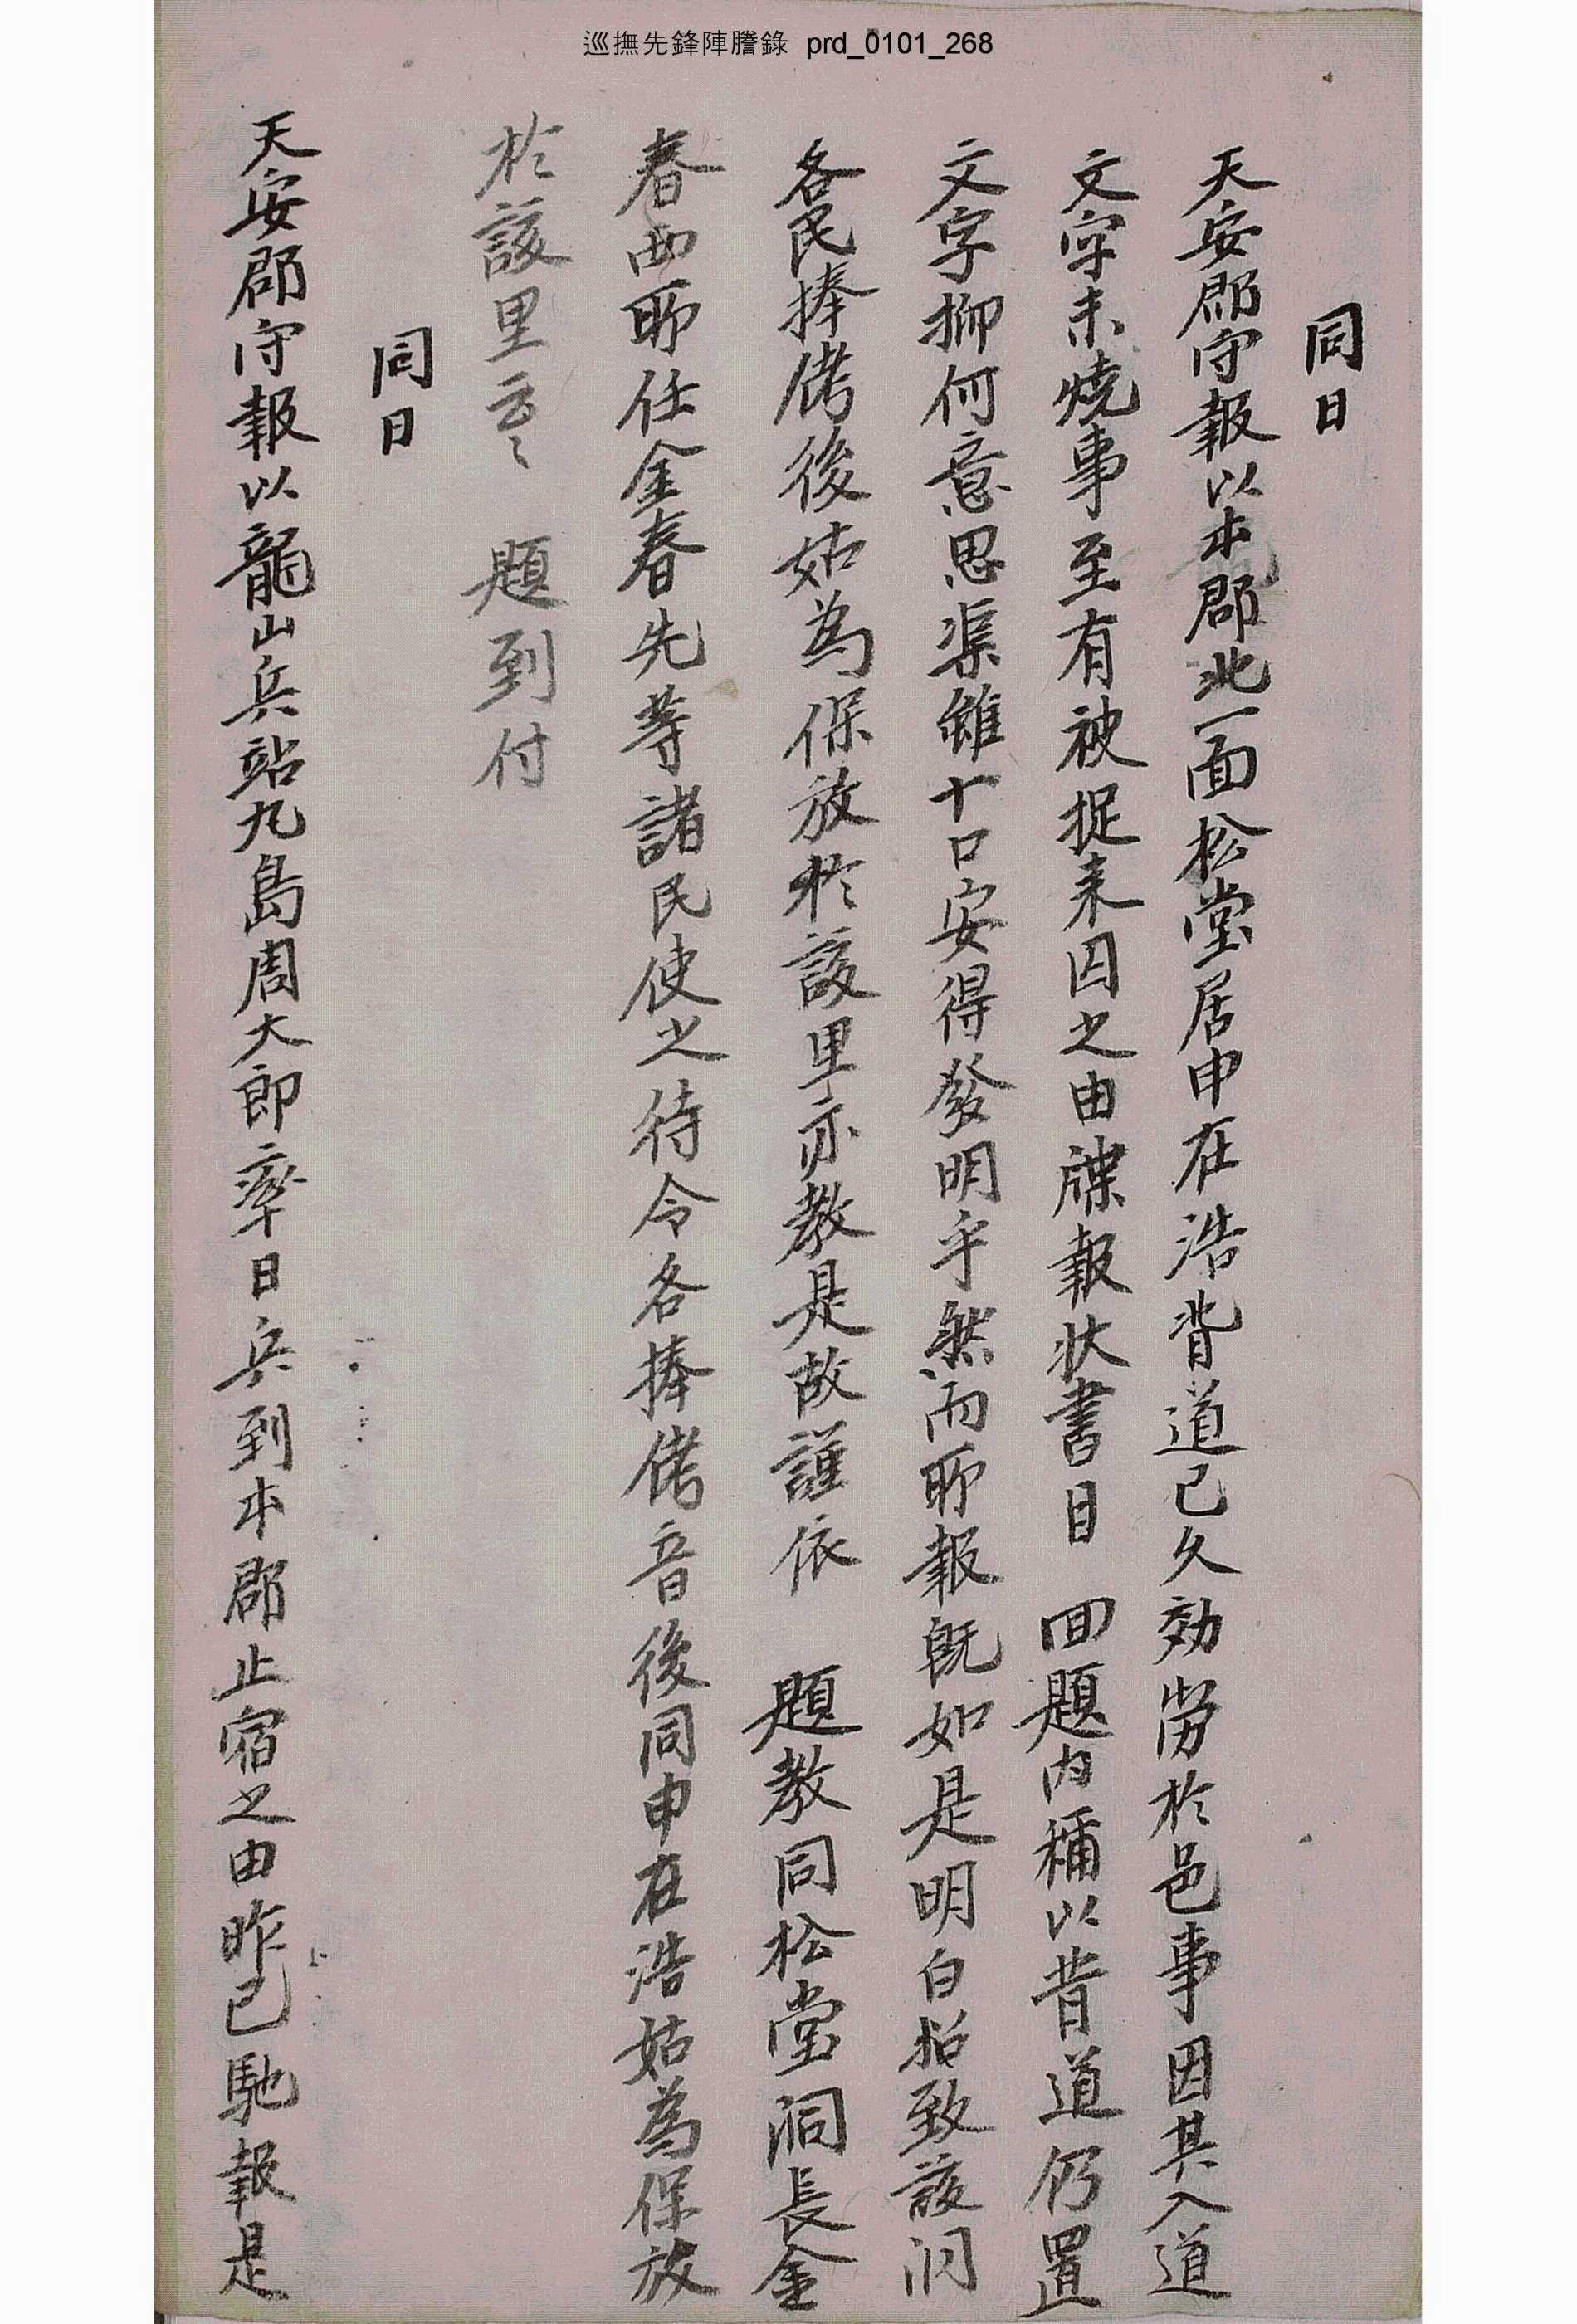 巡撫先鋒陣謄錄 prd_0101_268
同日
天安郡守報以本郡北一面松堂居申在浩背道已久効勞於邑事因其入道
文字未燒事至有被捉来囚之由牒報状書目 回題內稱以昔道仍置
文字抑何意思渠雖十口安得發明乎然而所報旣如是明白招致該洞
各民捧侤後姑為保放於該里亦敎是故謹依 題敎同松堂洞長金
春西所任金春先等諸民使之待令各捧侤音後同申在浩姑為保放
於該里言〻 題到付
同日
天安郡守報以龍山兵站九島周大郎率日兵到本郡止宿之由昨已馳報是